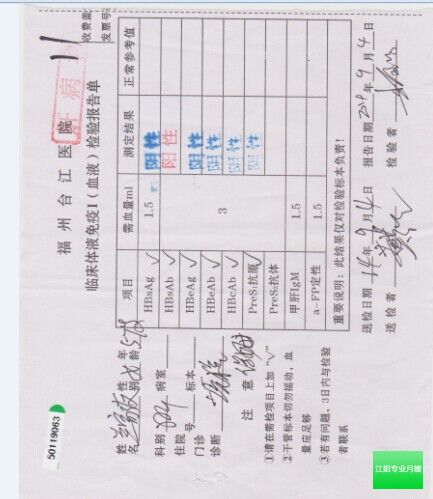 50119063
福州台江医院
临床体液免疫I（血液）检验报告单
收费盖
发票号
姓名 性别 女 年龄
科别 病室
住院号 标本
门诊
诊断
注意
①请在需检项目上加“√”
②干管标本切勿摇动，血量应足够
③若有问题，3日内与检验者联系
项目 需血量ml 测定结果 正常参考值
HBsAg √ 1.5 阴性
HBsAb √ 阳性
HBeAg √ 3 阴性
HBeAb √ 阴性
HBcAb √ 阴性
PreS₁抗原 √ 阴性
PreS₁抗体
甲肝IgM 1.5
a-FP定性 1.5
重要说明：此结果仅对检验标本负责！
送检日期 14年9月14日 报告日期 年9月4日
送检者 检验者
江姐专业月嫂